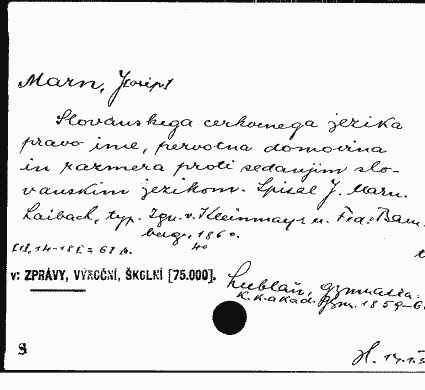 Marn, Josip
Slovanskega cerkvenega jezika
pravo ime, pervotna domovina
in razmera proti sedanjim slo-
vanskim jezikom. Spisal J. Marn.
Laibach, typ. Ign. v. Kleinmayr u. Fed. Bam-
berg, 1860.
4o
v: ZPRÁVY, VÝROČNÍ, ŠKOLNÍ [75.000].
Lublaň, gymnasia:
K. k. akad. Gym. 1859-6
S